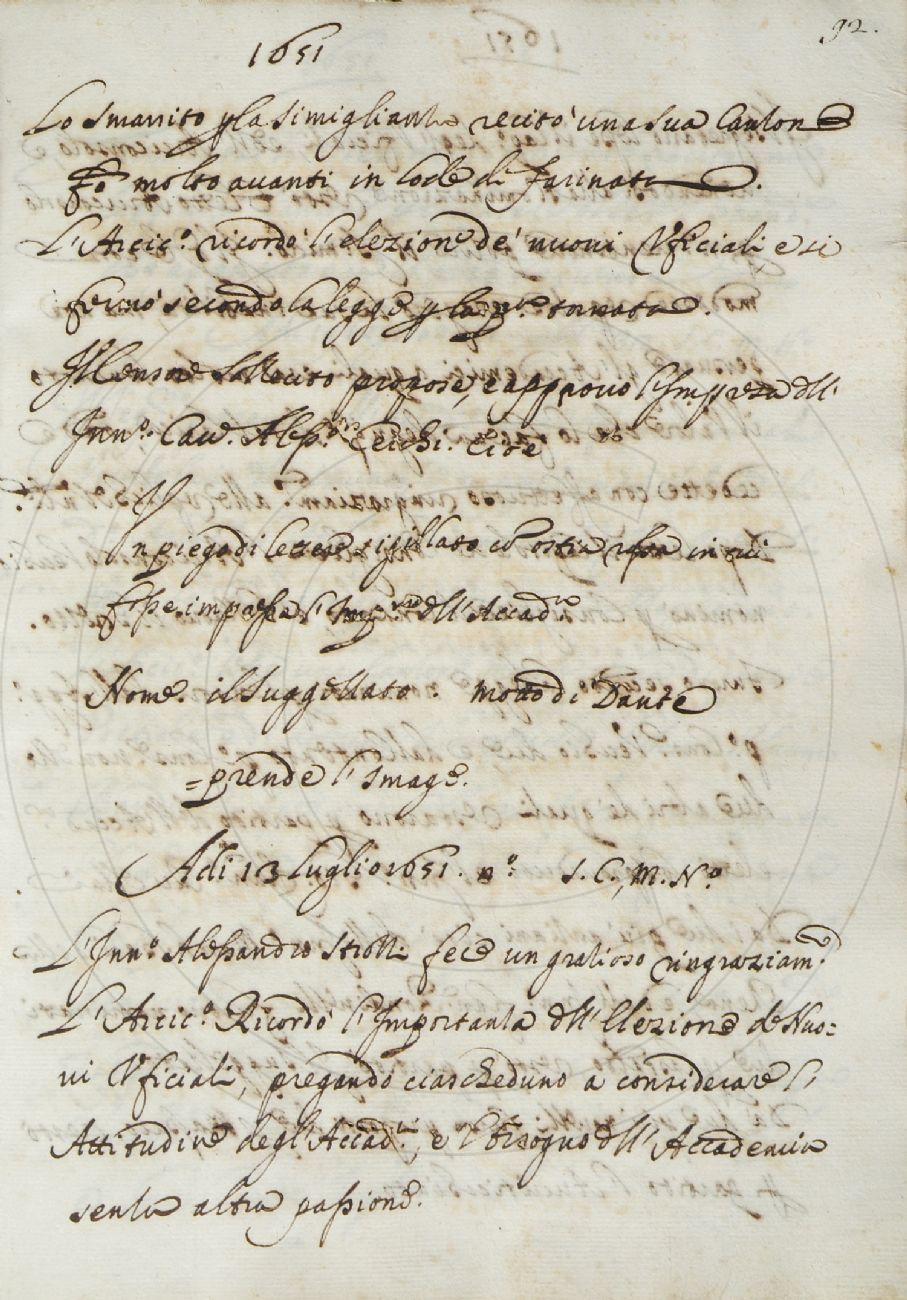 92.
1651
Lo Smarrito p la simigliante recitò una sua Canzone
fò molto avanti in lode di Farinata.
L'Arcic.º ricordò l'elezione de' nuovi Vficiali, e si
fermò secondo la legge p la tornata.
Il Censore Sollecito propose, e approvò l'Impresa dll'
Inn.º Cav. Aless.º Cerchi. Cioè
Un piego di lettere sigillato co ostia rossa in cui
fosse impressa l' dll' Accad.
Nome. il Suggellato. motto di Dante
=prende l'Image.
Adi 13 Luglio 1651. nº. S. C., M. Nº
L'Inn.º Alessandro Strozzi fece un grazioso ringraziam.º
L'Arcic.º Ricordò l'Importanza dll' Elezione de Nuo=
vi Vficiali, pregando ciascheduno a considerare l'
Attitudine degl'Accad.ci, e 'l bisogno dll' Accademia
senza altra passione.